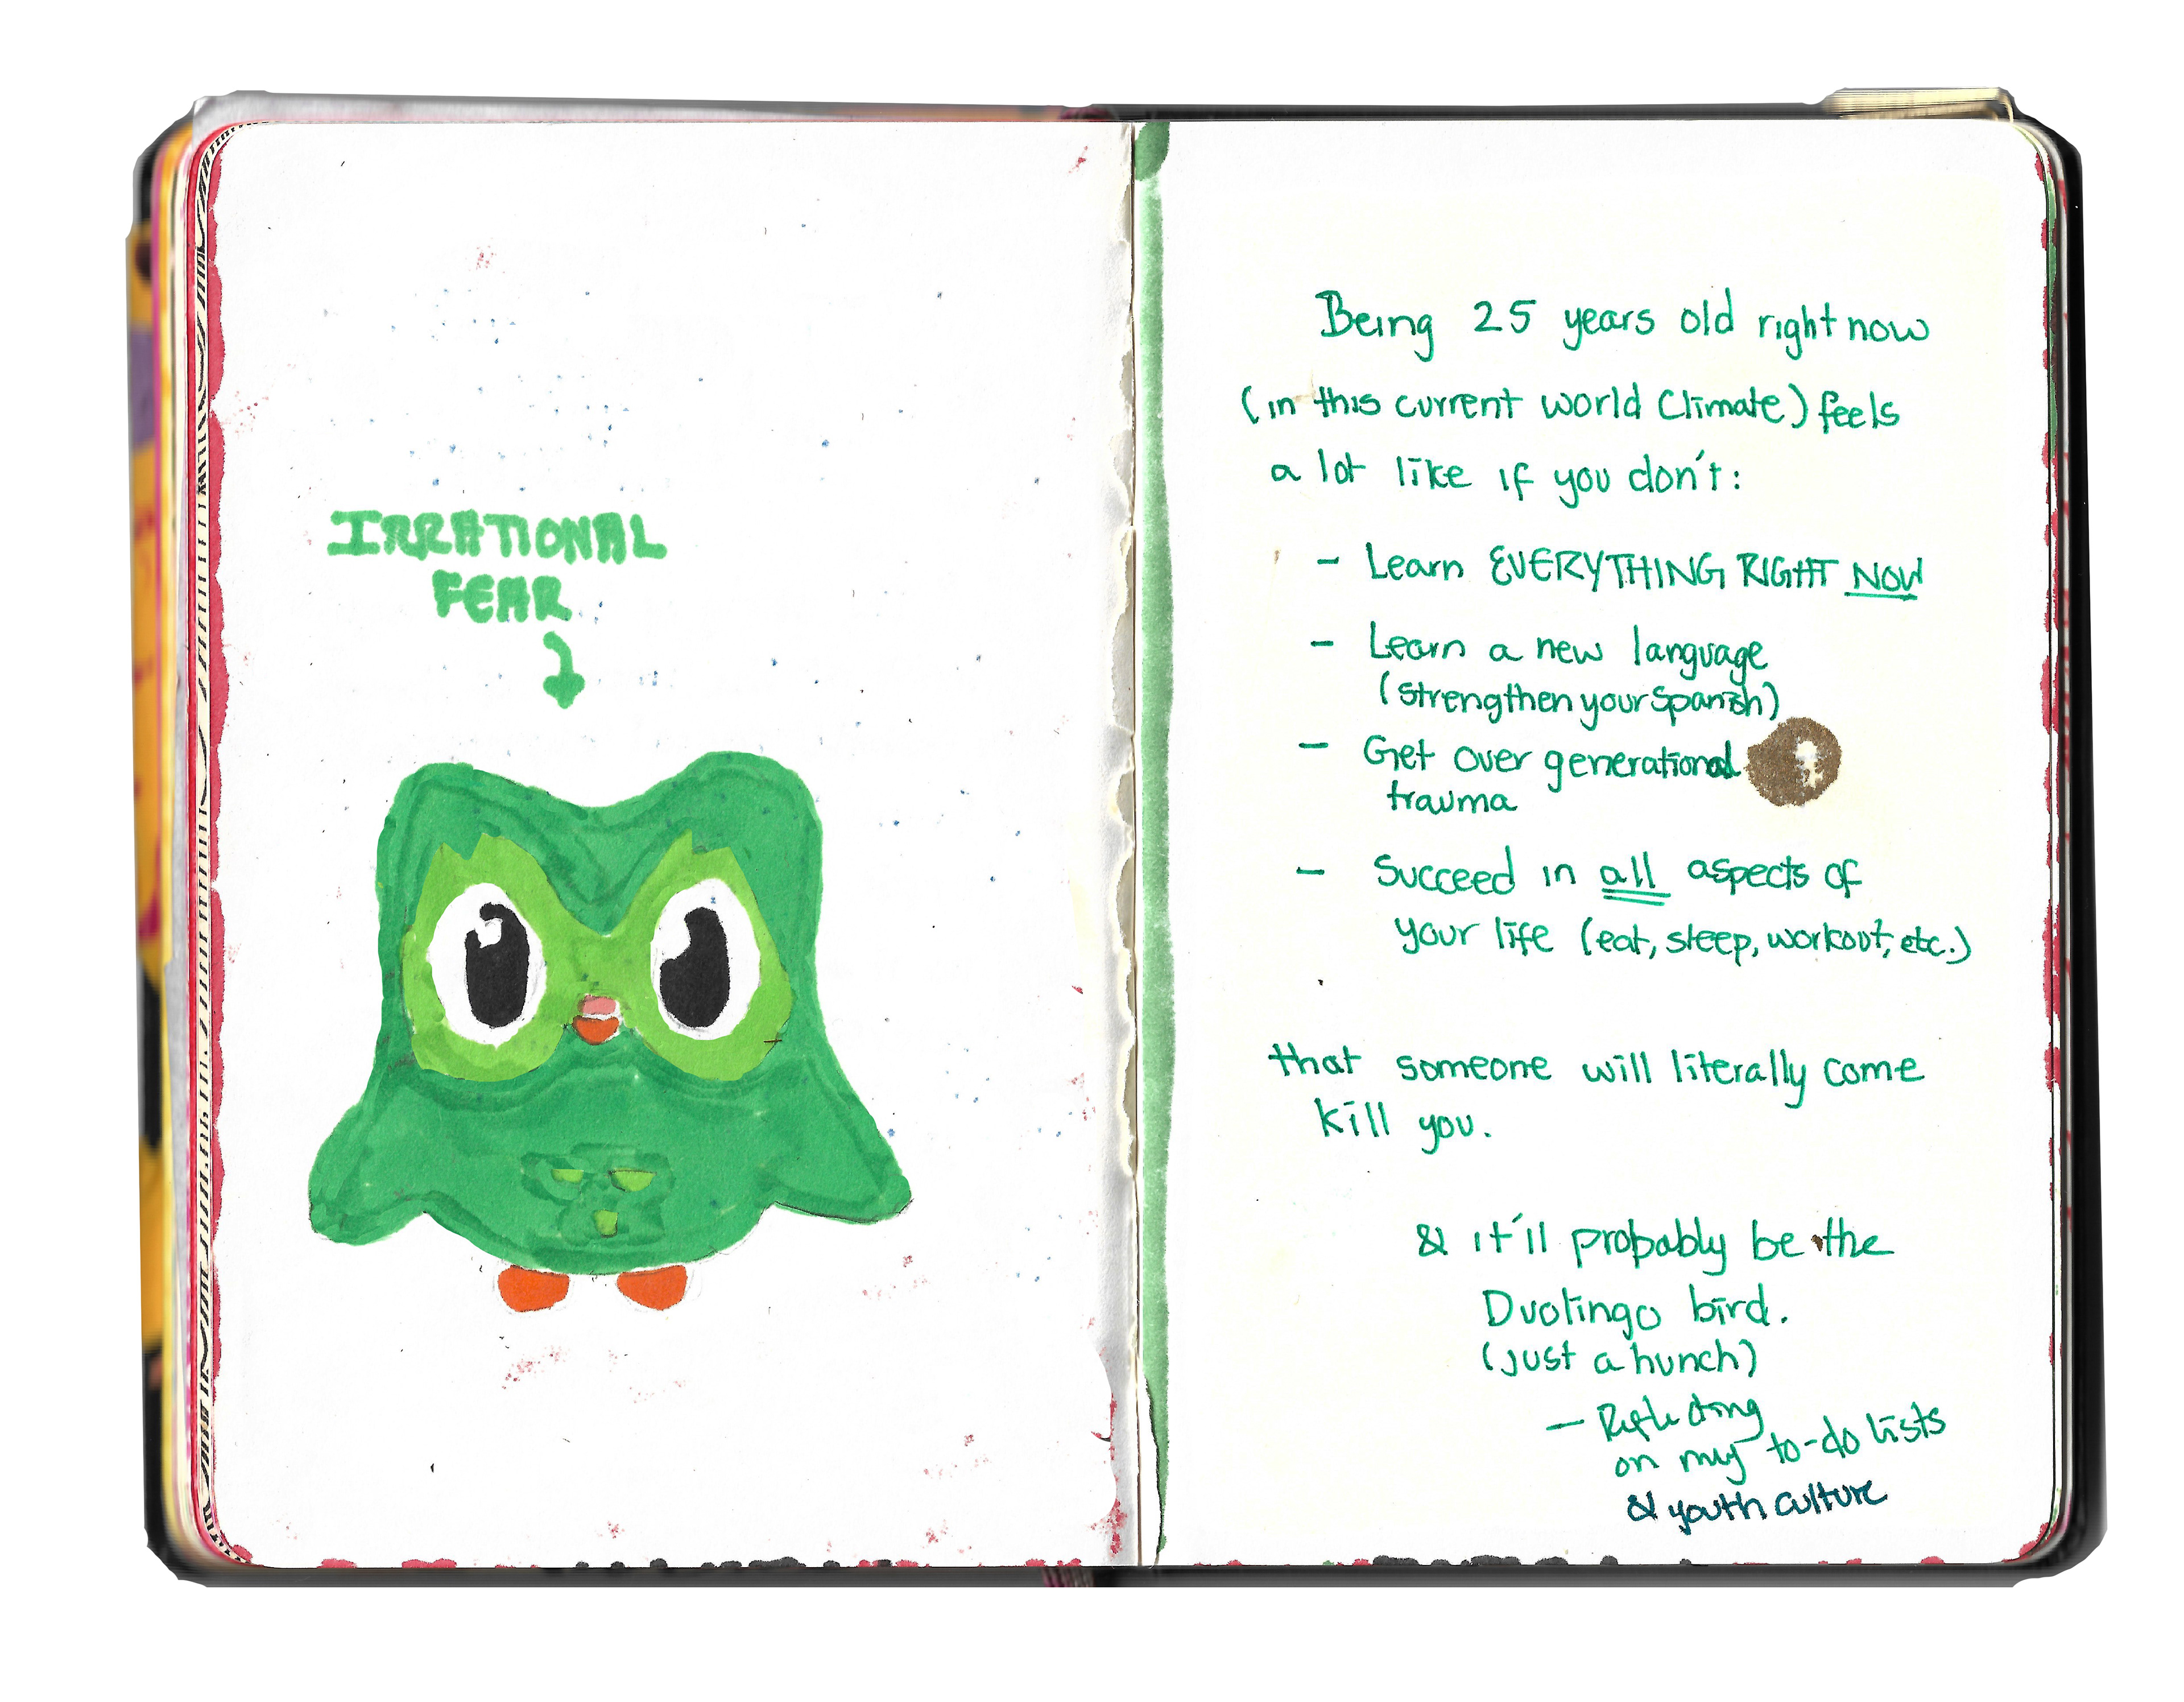 IRRATIONAL
FEAR
Being 25 years old right now
(in this current world climate) feels
a lot like if you don't:
- Learn EVERYTHING RIGHT NOW
- Learn a new language
(strengthen your Spanish)
- Get over generational
trauma
- Succeed in all aspects of
your life (eat, sleep, workout, etc.)
that someone will literally come
kill you.
& it'll probably be the
Duolingo bird.
(just a hunch)
- Reflecting
on my to-do lists
& youth culture